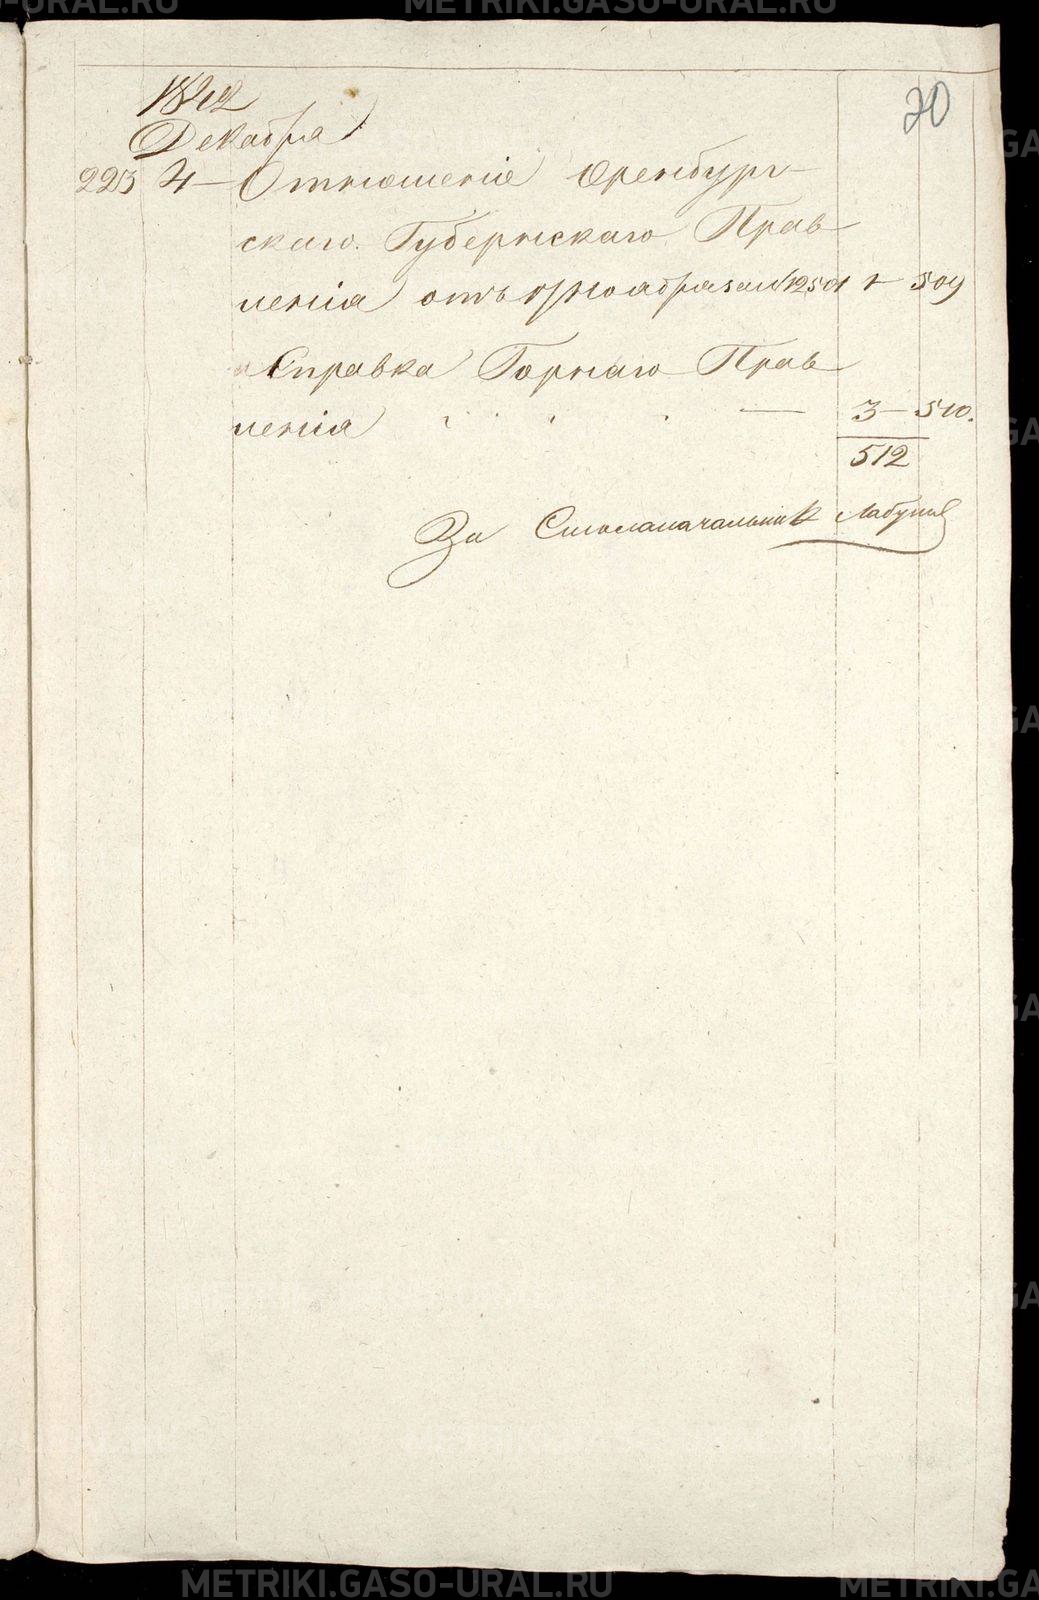 METRIKI.GASO-URAL.RU
20
1842
Декабря
2213 4 — Отношеніе Оренбург-
скаго Губернскаго Прав-
ленія отъ ноября за № 12501 1 — 509
Справка Горнаго Прав-
ленія — 3 — 510.
512
За Столоначальник
METRIKI.GASO-URAL.RU